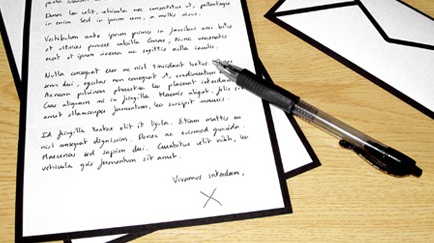 Donec leo velit, vehicula nec consectetur et, pellentesque
in enim sed in ipsum sem, a mollis
Vestibulum ante ipsum primis in faucibus orci luctus
et ultrices posuere cubilia Curae; Nunc venenatis
erat et ipsum viverra ac sagittis nulla iaculis.
Nulla consequat nisl tincidunt tortor
sem dui, egestas non consequat
Aenean pulvinar pharetra leo placerat interdum
Cras aliquam mi in fringilla Mauris aliquet, felis sit
amet ullamcorper fermentum, leo suscipit mauris
Id fringilla tortor elit et ligula. Etiam mattis eu
nisl consequat dignissim. Donec ac euismod gravida.
Maecenas sed sapien dui. Curabitur elit nibh, leo
vehicula quis fermentum sit amet.
Vivamus interdum,
X